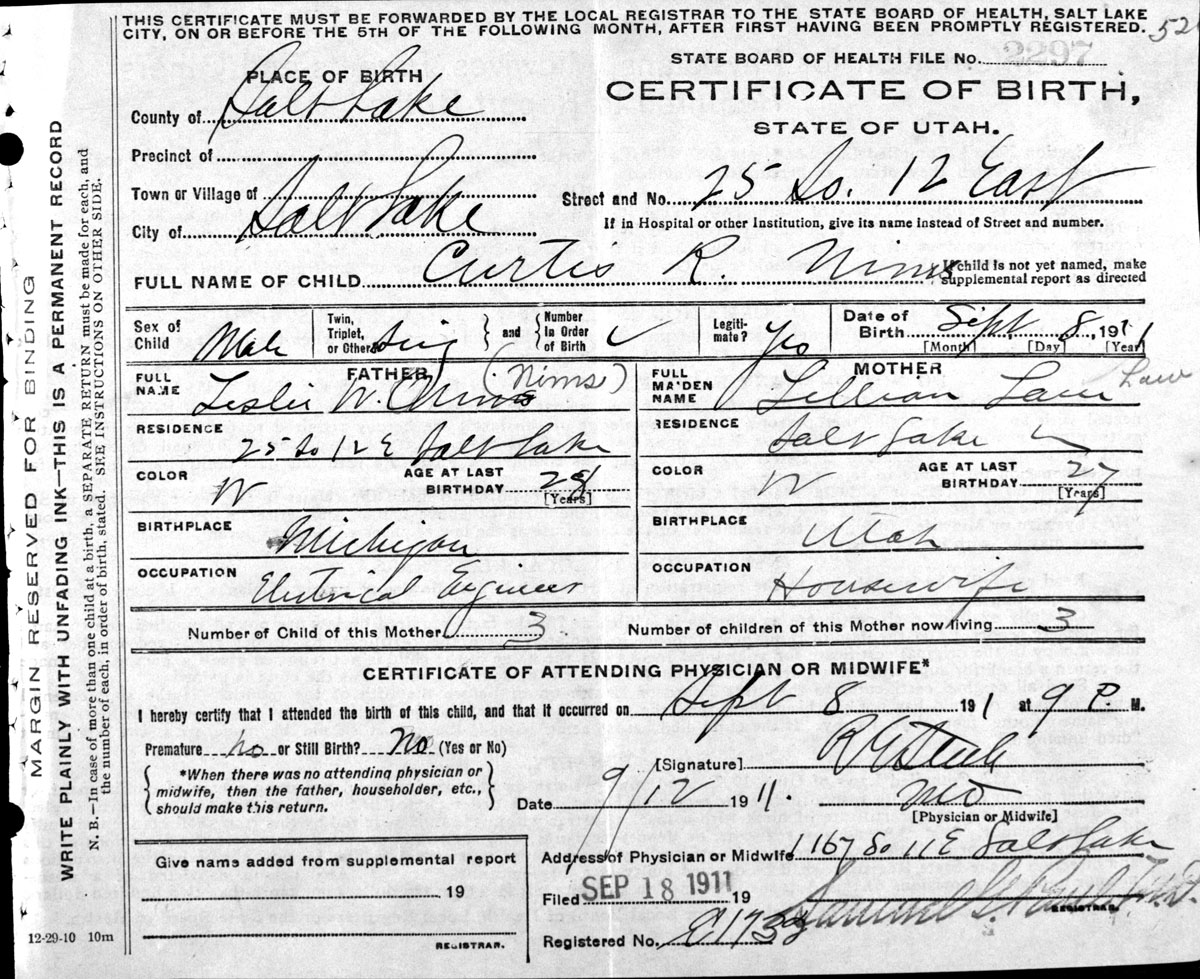 THIS CERTIFICATE MUST BE FORWARDED BY THE LOCAL REGISTRAR TO THE STATE BOARD OF HEALTH, SALT LAKE
CITY, ON OR BEFORE THE 5TH OF THE FOLLOWING MONTH, AFTER FIRST HAVING BEEN PROMPTLY REGISTERED. 52
STATE BOARD OF HEALTH FILE No. 2297
PLACE OF BIRTH
CERTIFICATE OF BIRTH,
STATE OF UTAH.
County of Salt Lake
Precinct of
Town or Village of
City of Salt Lake
Street and No. 25 So. 12 East
If in Hospital or other Institution, give its name instead of Street and number.
FULL NAME OF CHILD Curtis R. Nims
If child is not yet named, make
supplemental report as directed
Sex of Child Male
Twin, Triplet, or Other Sing and Number In Order of Birth
Legiti-mate? Yes
Date of Birth Sept 8, 1911
[Month] [Day] [Year]
FATHER (Nims)
FULL NAME Leslie W. Nims
RESIDENCE 25 So 12 E Salt Lake
COLOR W AGE AT LAST BIRTHDAY
[Years]
BIRTHPLACE Michigan
OCCUPATION Electrical Engineer
MOTHER Law
FULL MAIDEN NAME Lillian Law
RESIDENCE Salt Lake
COLOR W AGE AT LAST BIRTHDAY 27
[Years]
BIRTHPLACE Utah
OCCUPATION Housewife
Number of Child of this Mother 3 Number of children of this Mother now living 3
CERTIFICATE OF ATTENDING PHYSICIAN OR MIDWIFE*
I hereby certify that I attended the birth of this child, and that it occurred on Sept 8 191 1 at 9 P. M.
Premature no or Still Birth? No (Yes or No)
*When there was no attending physician or
midwife, then the father, householder, etc.,
should make this return.
[Signature]
Date 9/12 1911. MD
[Physician or Midwife]
Give name added from supplemental report
19
REGISTRAR.
Address of Physician or Midwife 1167 So 11 E Salt Lake
Filed SEP 18 1911 19
REGISTRAR.
Registered No.
12-29-10 10m
MARGIN RESERVED FOR BINDING
WRITE PLAINLY WITH UNFADING INK—THIS IS A PERMANENT RECORD
N. B.—In case of more than one child at a birth, a SEPARATE RETURN must be made for each, and
the number of each, in order of birth, stated. SEE INSTRUCTIONS ON OTHER SIDE.